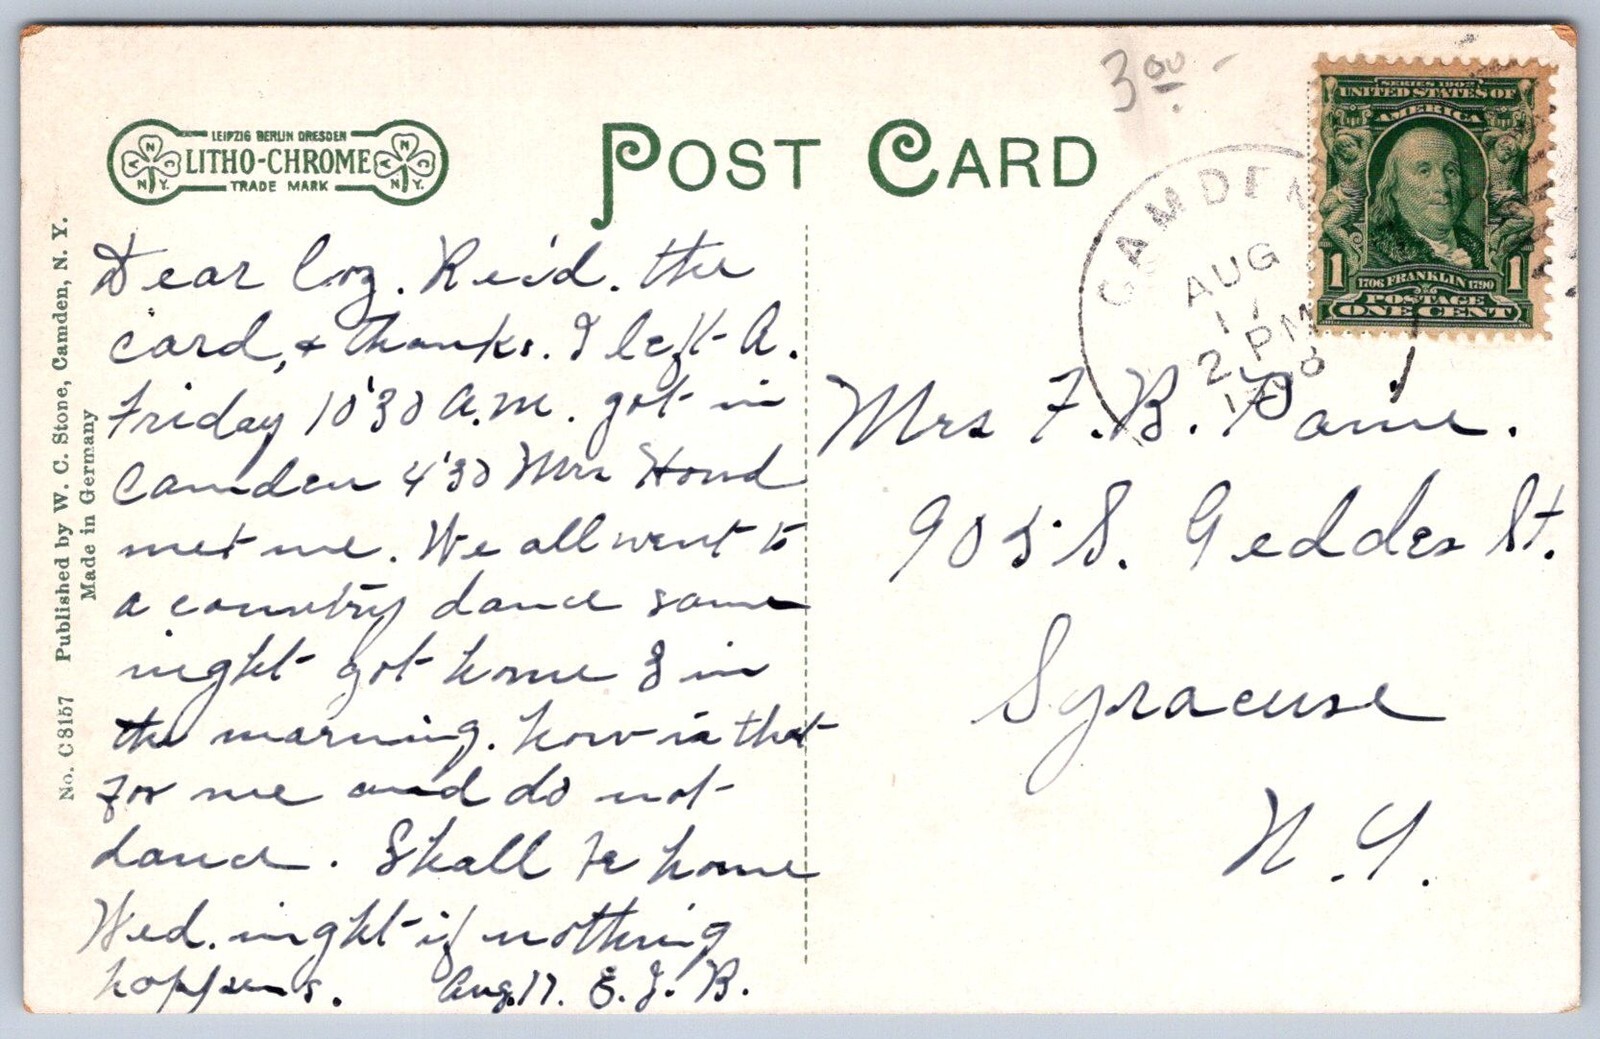 3⁰⁰ -
LEIPZIG BERLIN DRESDEN
LITHO-CHROME
TRADE MARK
A N C
N.Y.
A N C
N.Y.
POST CARD
SERIES 1902
UNITED STATES OF
AMERICA
1 1
1706 FRANKLIN 1790
POSTAGE
ONE CENT
CAMDEN
AUG
17
2 PM
1908
No. C 8157 Published by W. C. Stone, Camden, N. Y.
Made in Germany
Dear Coz. Rec'd. the
card, & thanks. I left A.
Friday 10'30 A.M. got in
Camden 4'30 Mrs
met me. We all went to
a country dance same
night got home 3 in
the morning. how is that
for me and do not
dance. Shall be home
Wed. night if nothing
happens. Aug. 17. E. J. B.
Mrs F. B. Paine.
905 S. Geddes St.
Syracuse
N. Y.